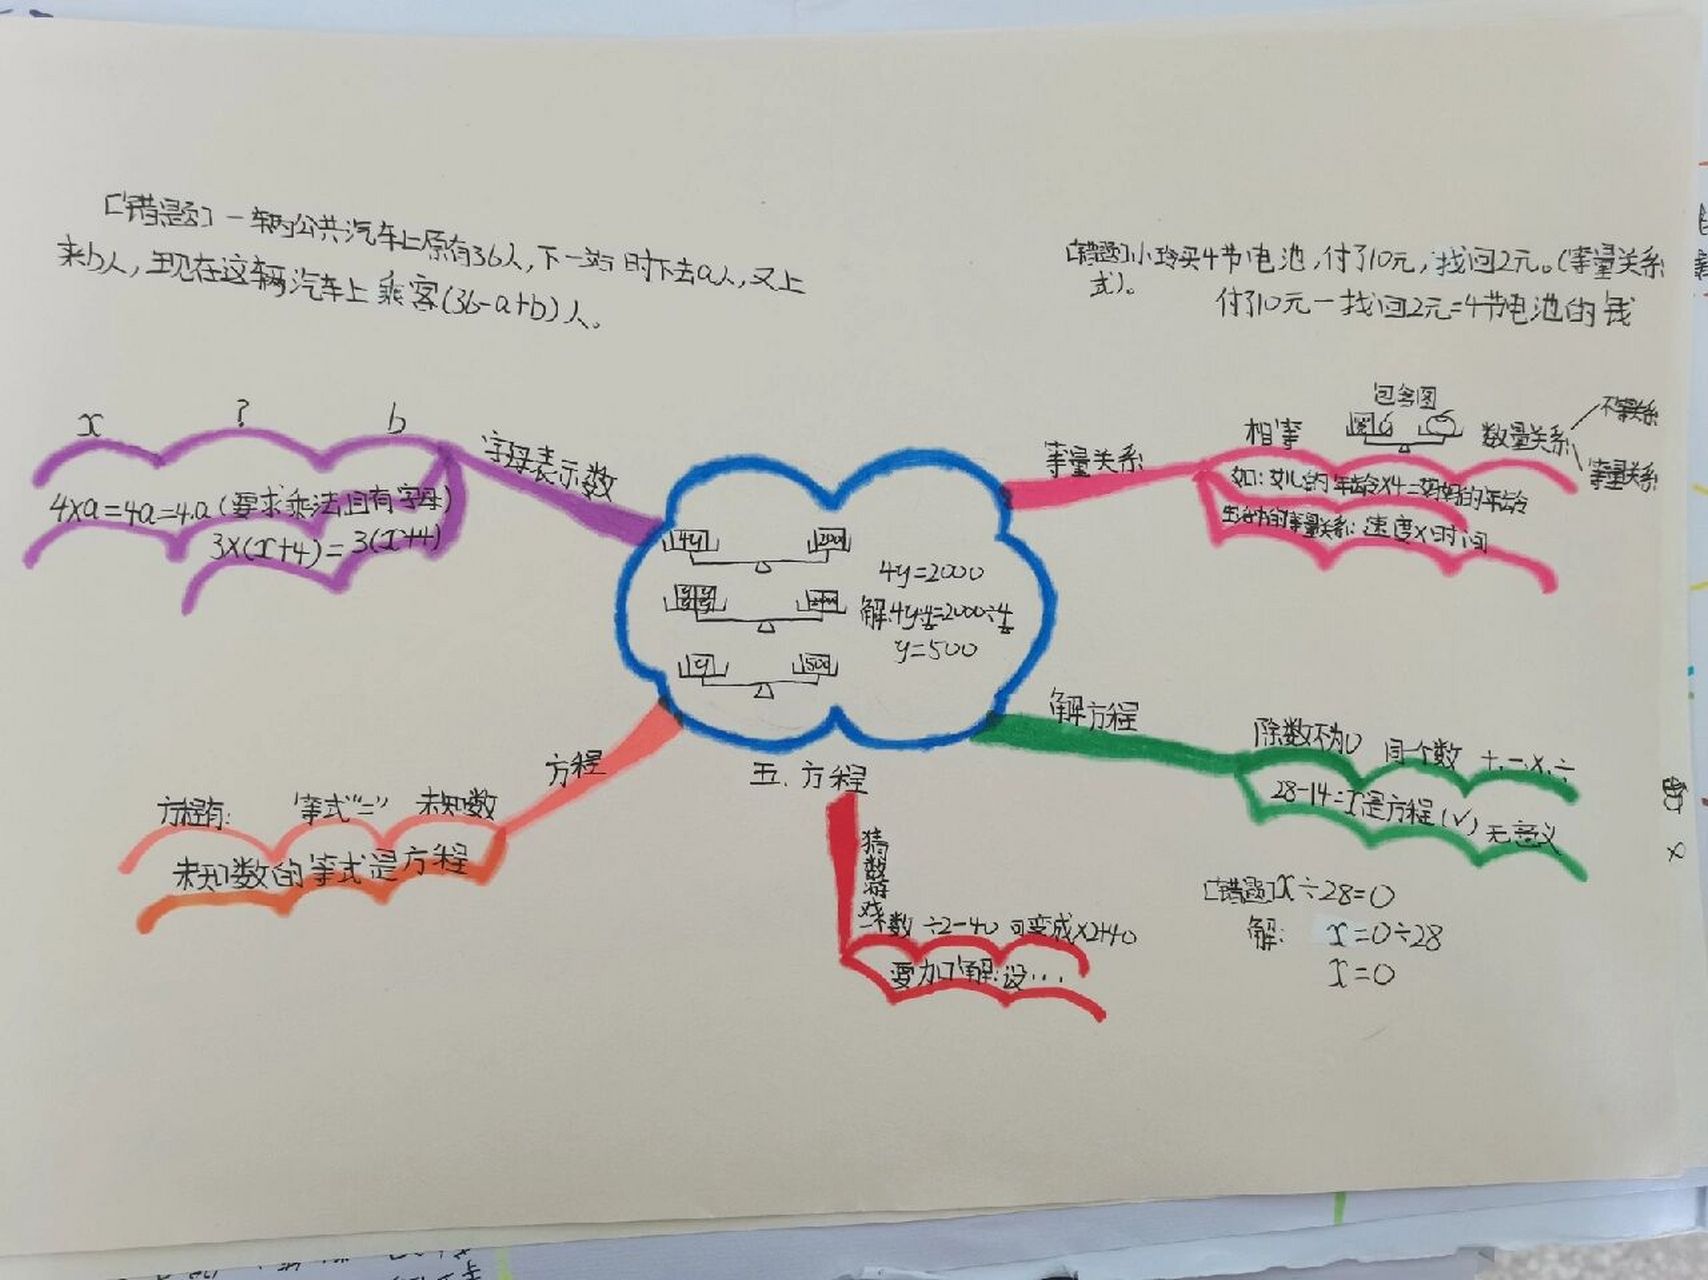 [错题]一辆公共汽车上原有36人,下一站时下去a人,又上
来b人,现在这辆汽车上乘客(36-a+b)人。
[错题]小玲买4节电池,付了10元,找回2元。(等量关系
式)。
付了10元-找回2元=4节电池的钱
x ? b
字母表示数
4×a=4a=4·a(要求乘法且有字母)
3×(x+4)=3(x+4)
等量关系
相等
包含图
数量关系
不等关系
等量关系
如:女儿的年龄×4=妈妈的年龄
生活中的等量关系:速度×时间
4y 2000
4y=2000
解:4y÷4=2000÷4
y=500
y 500
五.方程
方程
方程有: 等式"=" 未知数
未知数的等式是方程
解方程
除数不为0 同一个数 +.-.×.÷
28-14=x是方程(√) 无意义
[错题]x÷28=0
解: x=0÷28
x=0
猜数游戏
数 ÷2-40 可变成×2+40
要加"解:设…